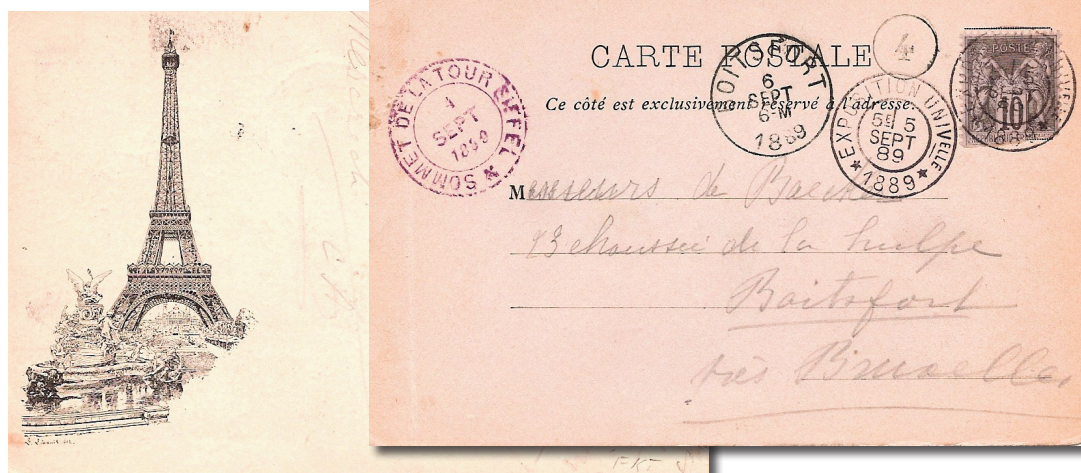 CARTE POSTALE
Ce côté est exclusivement réservé à l'adresse.
SOMMET DE LA TOUR EIFFEL
SEPT
1889
BOITSFORT
6
SEPT
6-M
1889
4
EXPOSITION UNIVELLE
5
SEPT
89
1889
POSTE
10
Messieurs de Backer
73 chaussée de la hulpe
Boitsfort
près Bruxelles